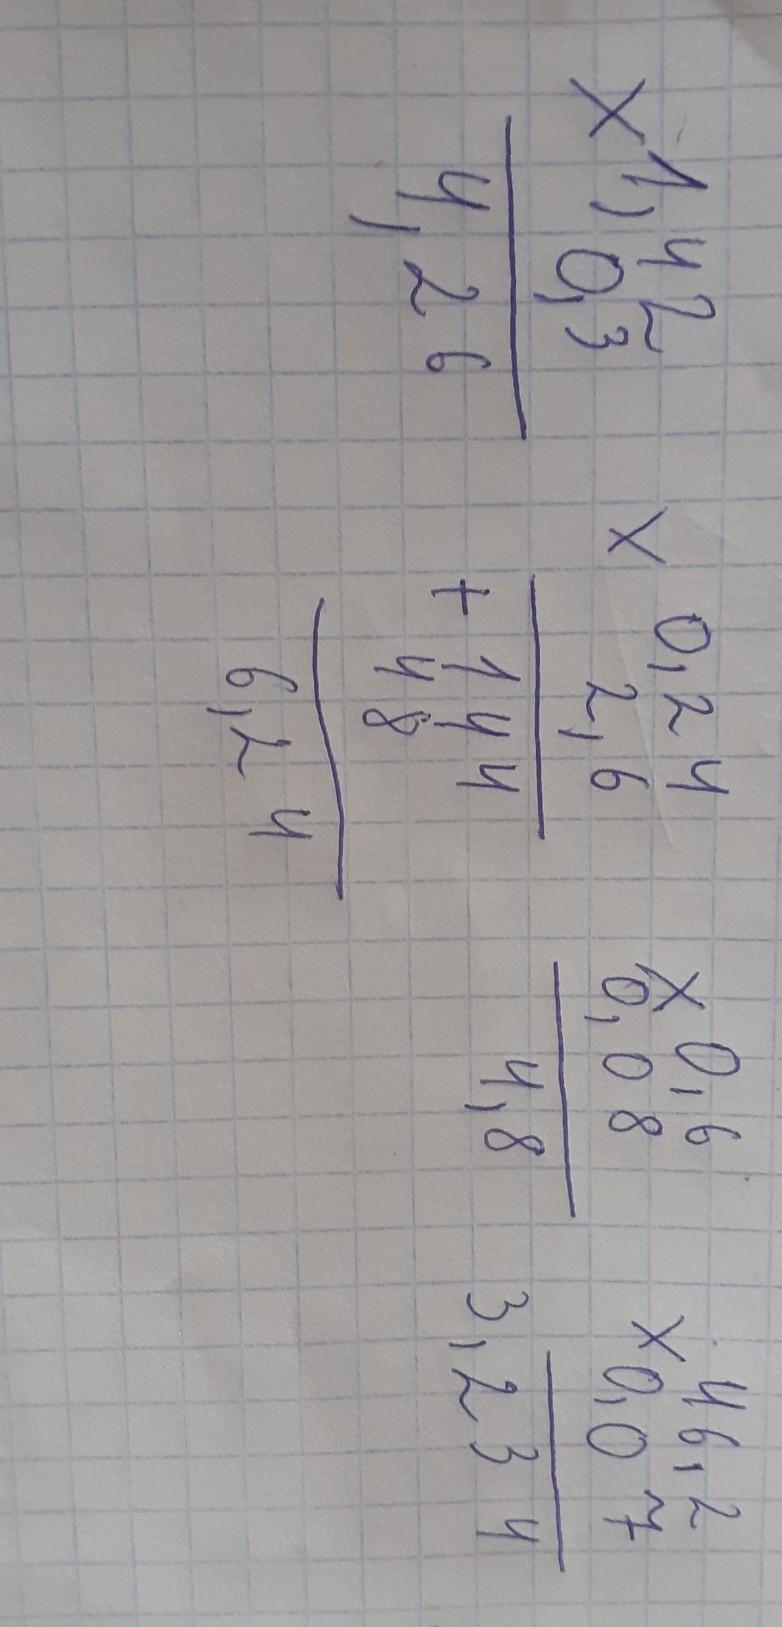 × 1,42
0,3
4,26
× 0,24
2,6
+ 144
48
6,24
× 0,6
0,08
4,8
× 46,2
0,07
3,234